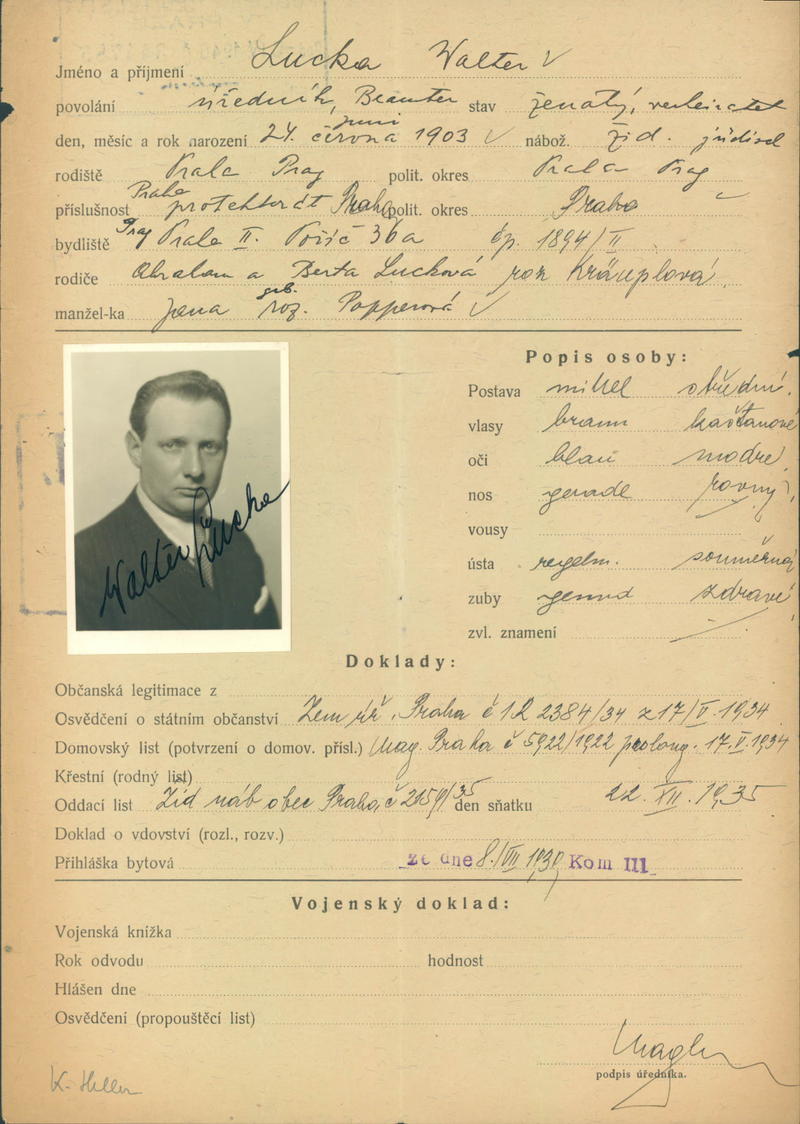 Jméno a příjmení Lucka Walter V
povolání úředník, Beamter stav ženatý, verheiratet
den, měsíc a rok narození 24. června Juni 1903 V nábož. žid. jüdisch
rodiště Praha Prag polit. okres Praha Prag
příslušnost Praha protektorát Praha polit. okres Praha
bydliště Prag Praha II. Poříč 36a čp. 1894/II
rodiče Abraham a Berta Lucková roz. Kräuplová
manžel-ka Jana geb. roz. Popperová V
Popis osoby:
Postava mittel střední
vlasy braun kaštanové
oči blau modré
nos gerade rovný
vousy
ústa regelm. souměrná
zuby gesund zdravé
zvl. znamení
Walter Lucka
Doklady:
Občanská legitimace z
Osvědčení o státním občanství Zem. úř. Praha č 12 2384/34 z 17/V. 1934
Domovský list (potvrzení o domov. přísl.) Mag. Praha č 5922/1922 prolong. 17.V.1934
Křestní (rodný list)
Oddací list Žid náb obec Praha, č 2159/35 den sňatku 22. XII. 1935
Doklad o vdovství (rozl., rozv.)
Přihláška bytová ze dne 8./VIII 1939 Kom III
Vojenský doklad:
Vojenská knížka
Rok odvodu hodnost
Hlášen dne
Osvědčení (propouštěcí list)
podpis úředníka.
K. Heller